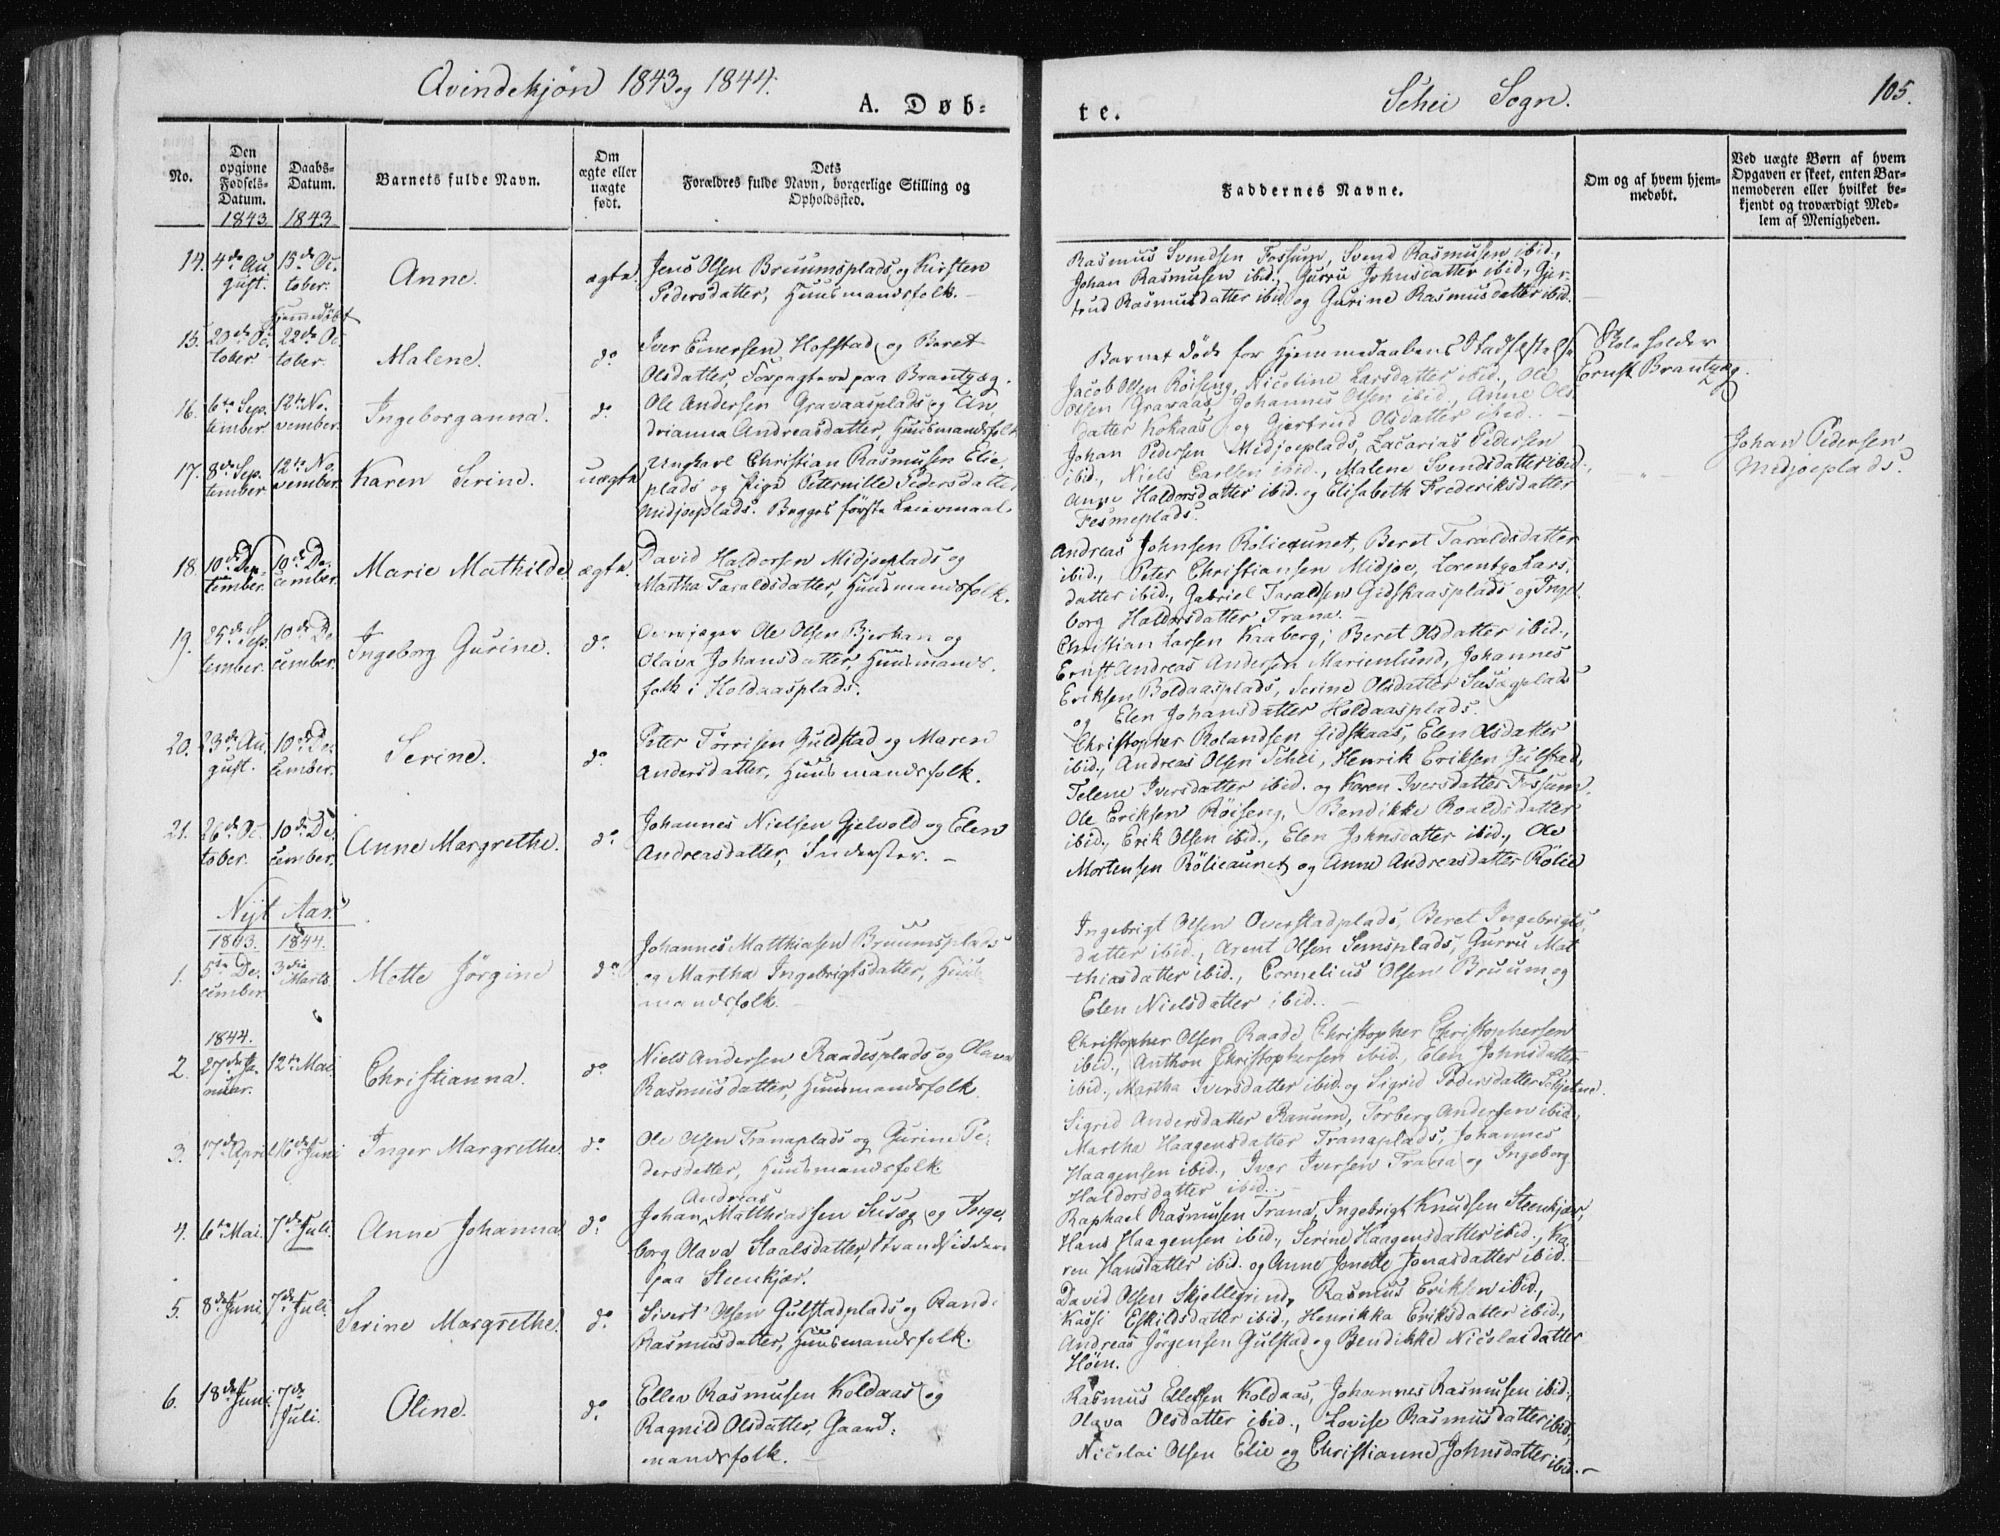 Qvindekjøn 1843 og 1844.
A. Døb-
te.
Schei Sogn.
105.
No.
Den opgivne Fødsels-Datum.
1843
Daabs-Datum.
1843
Barnets fulde Navn.
Om ægte eller uægte født.
Dets Forældres fulde Navn, borgerlige Stilling og Opholdssted.
Faddernes Navne.
Om og af hvem hjemmedøbt.
Ved uægte Børn af hvem Opgaven er skeet, enten Barnemoderen eller hvilket bekjendt og troværdigt Medlem af Menigheden.
14. 4de August. 15de October. Anne. ægte.
Jens Olsen Bruumsplads og Kirsten
Pedersdatter, Huusmandsfolk. -
Rasmus Svendsen Fossum, Svend Rasmusen ibid.,
Johan Rasmusen ibid., Gurru Johnsdatter ibid., Gjer-
trud Rasmusdatter ibid. og Gurine Rasmusdatter ibid.
15. 20de October. Hjemmedøbt 22de October. Malene. do
Iver Einersen Hofstad og Beret
Olsdatter, Forpagtere paa Brantzæg.
Barnet døde før Hjemmedaabens Stadfæstelse
Skoleholder
Ernst Brantzæg.
16. 6te September 12te November. Ingeborganna. do
Ole Andersen Gravaasplads og
drianna Andreasdatter, Huusmandsfolk
Jacob Olsen Röiseng, Nicoline Larsdatter ibid., Ole
Olsen Gravaas, Johannes Olsen ibid., Anne Ols-
datter Lokaas og Gjertrud Olsdatter ibid. -
17. 8de September 12te November. Karen Serine. uægte
Ungkarl Christian Rasmusen Elie-
plads og Pige Peternille Pedersdatter
Midjoeplads. Begges første Leiermaal.
Johan Pedersen Midjoeplads, Zacarias Pedersen
ibid., Niels Carlsen ibid., Malene Svendsdatter ibid.,
Anne Haldorsdatter ibid. og Elisabeth Frederiksdatter
Fesmeplads.
Johan Pedersen
Midjoeplads.
18. 10de September. 10de December. Marie Mathilde ægte.
David Haldorsen Midjoeplads og
Martha Taraldsdatter, Huusmandsfolk.
Andreas Johnsen Rölieaunet, Beret Taraldsdatter
ibid., Peter Christiansen Midjoe, Lorentze Lars-
datter ibid., Gabriel Taraldsen Gidskaasplads og Inge-
borg Haldorsdatter Trana. -
19. 25de September. 10de December. Ingeborg Gurine. do
Ole Olsen Bjerkan og
Olava Johansdatter, Huusmands-
folk i Holdaasplads.
Christian Larsen Kaaberg, Beret Olsdatter ibid.,
Ernst Andreas Andersen Marienlund, Johannes
Eriksen Boldaasplads, Serine Olsdatter Susægplads
og Elen Johansdatter Holdaasplads.
20. 23de August. 10de December. Serine. do
Peter Torrisen Guldstad og Maren
Andersdatter, Huusmandsfolk.
Christopher Rolandsen Gidskaas, Elen Olsdatter
ibid., Andreas Olsen Schei, Henrik Eriksen Gulstad,
Telene Iversdatter ibid. og Karen Iversdatter Fossum.
21. 26de October. 10de December. Anne Margrethe. do
Johannes Nielsen Gjelvold og Elen
Andreasdatter, Inderster. -
Ole Eriksen Röiseng, Bendikke Roaldsdatter
ibid., Erik Olsen ibid., Elen Johnsdatter ibid., Ole
Mortensen Rölieaunet og Anne Andreasdatter Rölie
Nyt Aar
1843. 1844.
1. 5te December 3die Marts Mette Jörgine do
Johannes Matthiasen Bruumsplads
og Martha Ingebrigtsdatter, Huus-
mandsfolk. -
Ingebrigt Olsen Overstadplads, Beret Ingebrigts-
datter ibid., Arent Olsen Semsplads, Gurru Mat-
thiasdatter ibid., Cornelius Olsen Bruum og
Elen Nielsdatter ibid. -
1844.
2. 27de Januar. 12te Mai. Christianna. do
Niels Andersen Raadesplads og Olava
Rasmusdatter, Huusmandsfolk
Christopher Olsen Raade, Christopher Christophersen
ibid., Anthon Christophersen ibid., Elen Johnsdatter
ibid., Martha Iversdatter ibid. og Sigrid Pedersdatter
3. 17de April 16de Juni Inger Margrethe. do
Ole Olsen Tranaplads og Gurine Pe-
dersdatter, Huusmandsfolk.
Sigrid Andersdatter Ranum, Torberg Andersen ibid.,
Martha Haagensdatter Tranaplads, Johannes
Haagensen ibid., Iver Iversen Trana og Ingeborg
Haldorsdatter ibid. -
4. 6te Mai. 7de Juli. Anne Johanna. do
Andreas
Johan Matthiasen Susæg og Inge-
borg Olava Staalsdatter, Strandsiddere
paa Steenkjær.
Raphael Rasmusen Trana, Ingebrigt Knudsen Steenkjær,
Hans Haagensen ibid., Serine Haagensdatter ibid., Ka-
ren Hansdatter ibid. og Anne Jonette Jonasdatter ibid.
5. 8de Juni 7de Juli. Serine Margrethe. do
Sivert Olsen Gulstadplads og Randi
Rasmusdatter, Huusmandsfolk.
David Olsen Skjellegrind, Rasmus Eriksen ibid.,
Kassi Eskildsdatter ibid., Henrikka Eriksdatter ibid.,
Andreas Jörgensen Gulstad og Bendikke Nicolaidatter
Höim.
6. 18de Juni 7de Juli. Oline. do
Ellev Rasmusen Koldaas og
Ragnild Olsdatter, Gaard-
mandsfolk. -
Rasmus Ellefsen Koldaas, Johannes Rasmusen ibid.,
Olava Olsdatter ibid., Lovise Rasmusdatter ibid.,
Nicolai Olsen Elie og Christianne Johnsdatter ibid. -